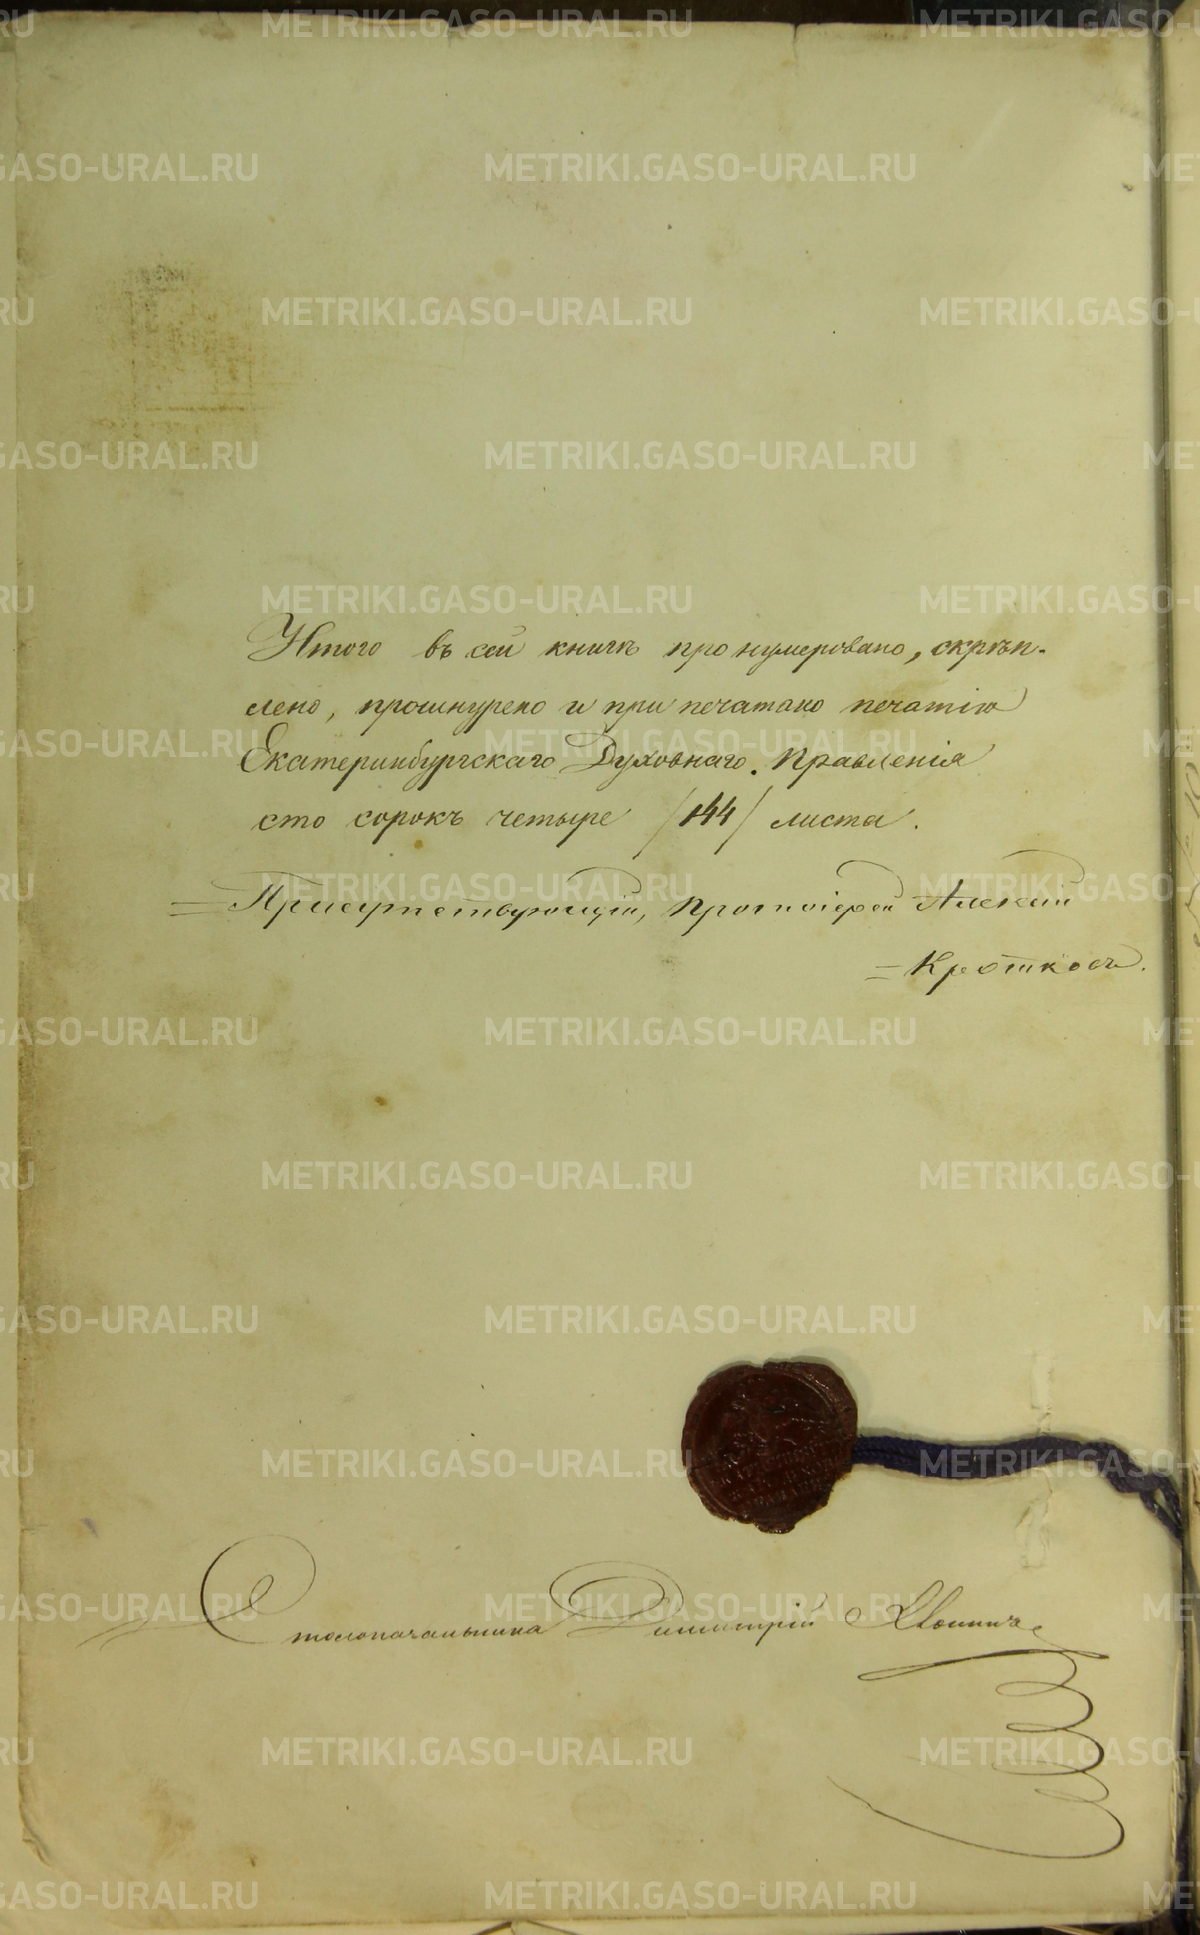 Итого въ сей книгѣ пронумеровано, скрѣп-
лено, прошнурено и припечатано печатію
Екатеринбургскаго Духовнаго Правленія
сто сорокъ четыре /144/ листа.
Присутствующій, Протоіерей Алексій
Кротковъ.
Столоначальника Димитрій
METRIKI.GASO-URAL.RU